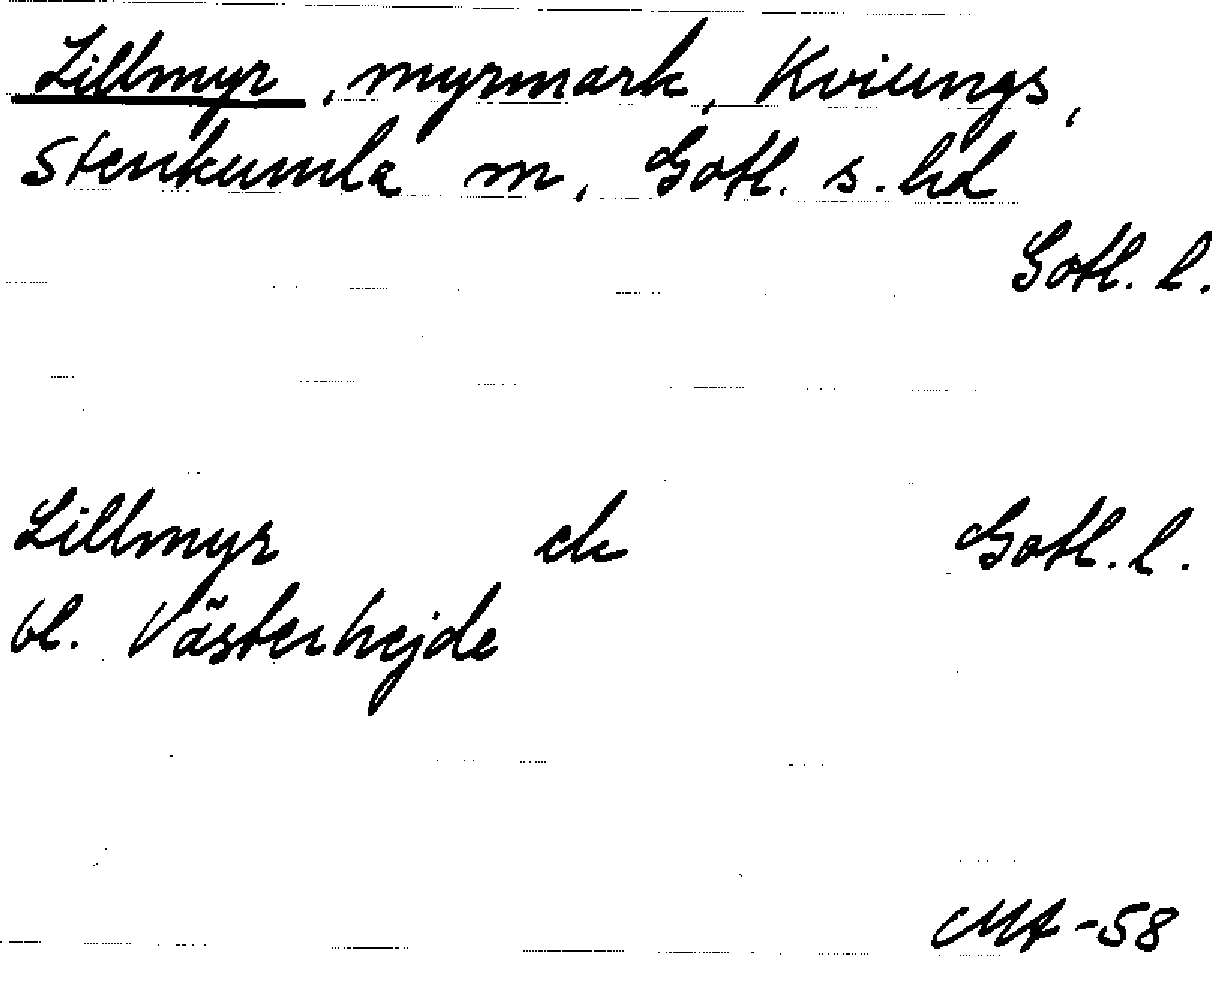 Lillmyr, myrmark, Kviungs,
Stenkumla m, Gotl. s. hd
Gotl. l.
Lillmyr ek Gotl. l.
bl. Västerhejde
MA-58